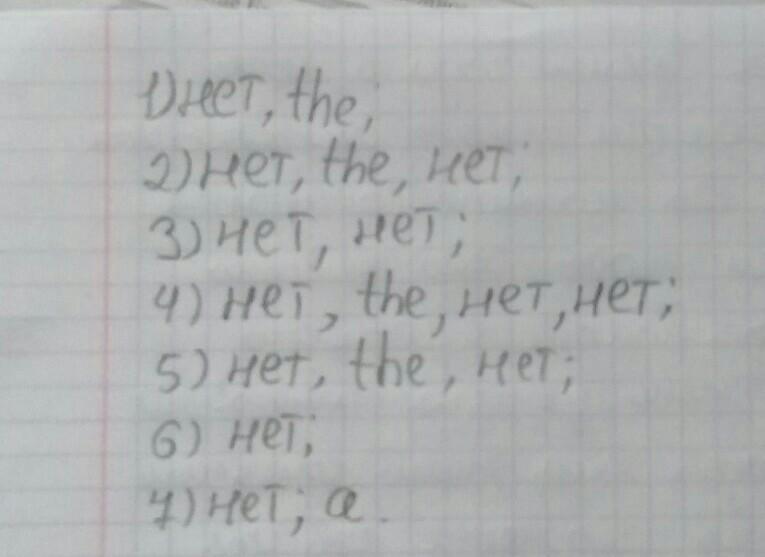 1) нет, the;
2) нет, the, нет;
3) нет, нет;
4) нет, the, нет, нет;
5) нет, the, нет;
6) нет;
7) нет; a.